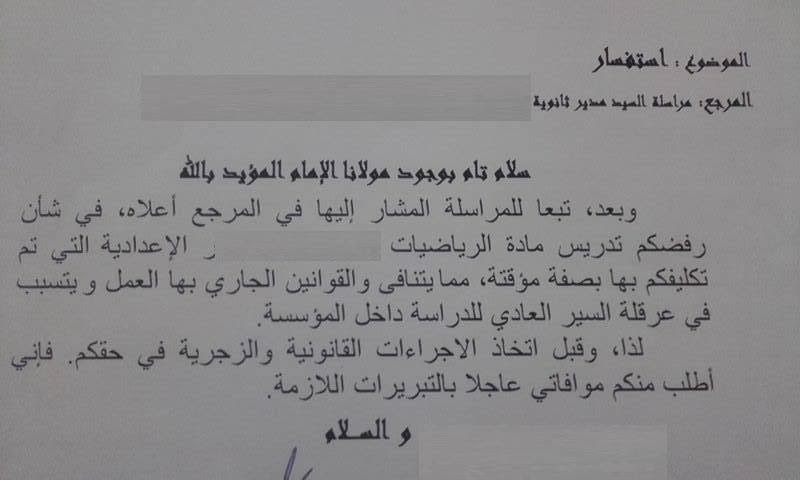 الموضوع : استفسار
المرجع: مراسلة السيد مدير ثانوية
سلام تام بوجود مولانا الإمام المؤيد بالله
وبعد، تبعا للمراسلة المشار إليها في المرجع أعلاه، في شأن
رفضكم تدريس مادة الرياضيات ر الإعدادية التي تم
تكليفكم بها بصفة مؤقتة، مما يتنافى والقوانين الجاري بها العمل ويتسبب
في عرقلة السير العادي للدراسة داخل المؤسسة.
لذا، وقبل اتخاذ الاجراءات القانونية والزجرية في حقكم. فإني
أطلب منكم موافاتي عاجلا بالتبريرات اللازمة.
و السلام